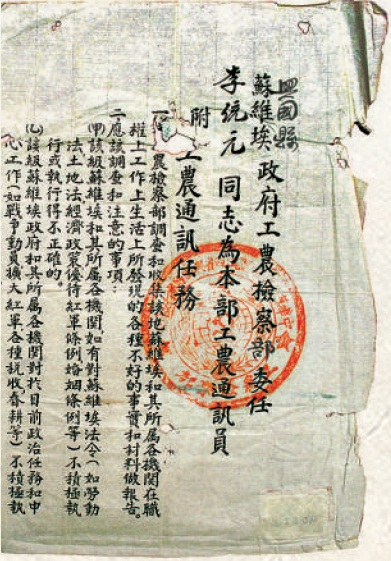 縣
蘇維埃政府工農檢察部委任
李統元同志為本部工農通訊員
附工農通訊任務
一、農檢察部調查和收集該地蘇維埃和其所屬各機關在職
權上工作上生活上所發現的各種不好的事實和材料做報告。
二、應該調查和注意的事項：
(甲)該級蘇維埃和其所屬各機關，如有對蘇維埃法令（如勞動
法土地法經濟政策優待紅軍條例婚姻條例等）不積極執
行或執行得不正確的。
(乙)該級蘇維埃政府和其所屬各機關對於目前政治任務和中
心工作（如戰爭動員擴大紅軍各種稅收春耕等）不積極執